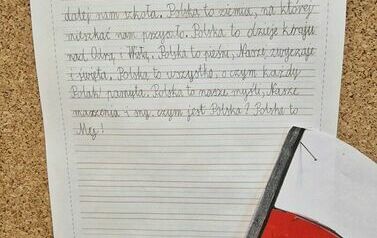 dalej nam szkoła. Polska to ziemia, na której
mieszkać nam przyszło. Polska to dzieje kraju
nad Odrą i Wisłą. Polska to pieśni, Nasze zwyczaje
i święta. Polska to wszystko, o czym każdy
Polak pamięta. Polska to nasze myśli, Nasze
marzenia i sny. czym jest Polska? Polska to
My!